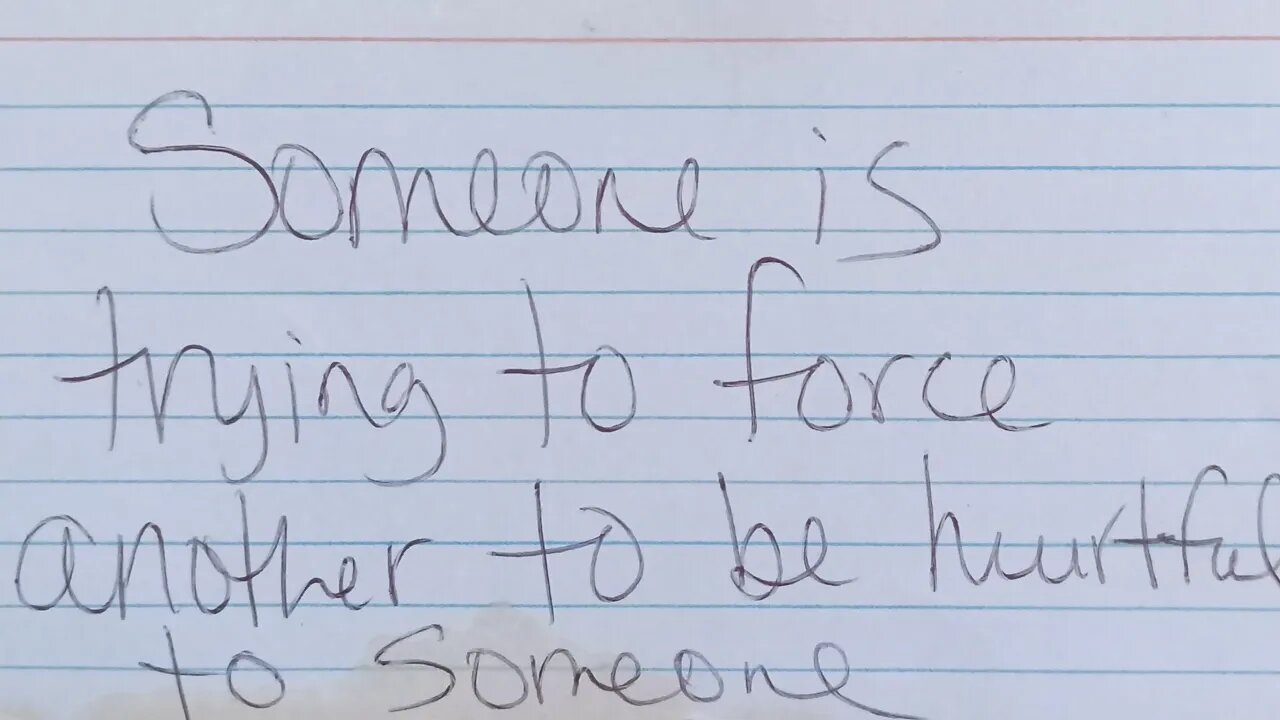 Someone is
trying to force
another to be hurtful
to someone